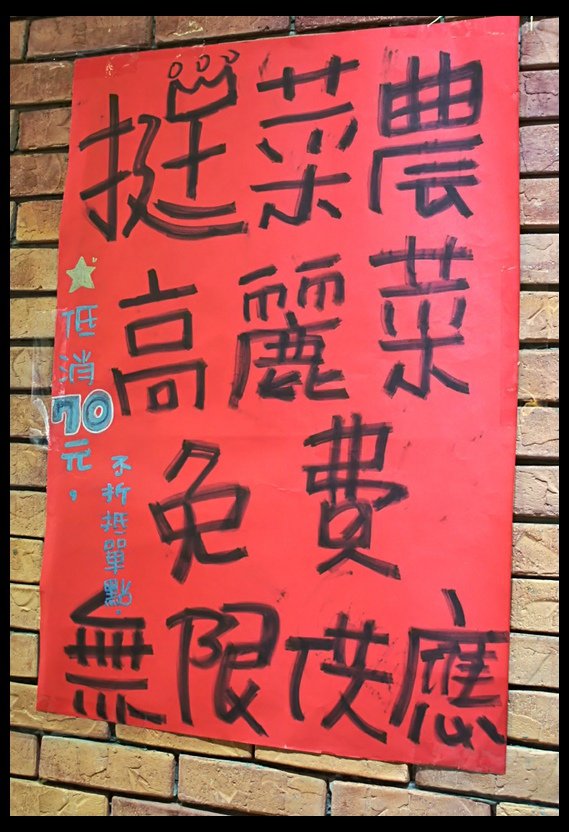 挺菜農
高麗菜
免費
無限供應
低消70元，
不折抵單點.